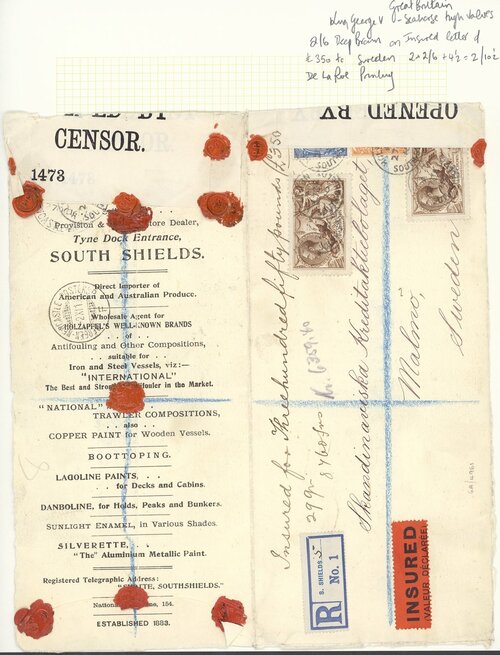 Great Britain
King George V - Seahorse high values
2/6 Deep Brown on Insured letter of
£350 to Sweden 2 x 2/6 + 4½ =
De La Rue Printing
OPENED BY
CENSOR.
1473
Provision & Store Dealer,
Tyne Dock Entrance,
SOUTH SHIELDS.
Direct Importer of
American and Australian Produce.
Wholesale Agent for
HOLZAPFEL'S WELL-KNOWN BRANDS
. . of . .
Antifouling and Other Compositions,
. . suitable for . .
Iron and Steel Vessels, viz:—
"INTERNATIONAL"
The Best and in the Market.
"NATIONAL"
TRAWLER COMPOSITIONS,
. . also . .
COPPER PAINT for Wooden Vessels.
BOOTTOPING.
LAGOLINE PAINTS, . .
. . for Decks and Cabins.
DANBOLINE, for Holds, Peaks and Bunkers.
SUNLIGHT ENAMEL, in Various Shades.
SILVERETTE, . .
"The" Aluminium Metallic Paint.
Registered Telegraphic Address:
SOUTHSHIELDS."
154.
ESTABLISHED 1883.
Insured for Three hundred fifty pounds £350
Kr. 6359.40
299
Skandinaviska Kreditaktiebolaget
Malmö,
Sweden
R
S. SHIELDS 5
No. 1
INSURED
(VALEUR DÉCLARÉE)